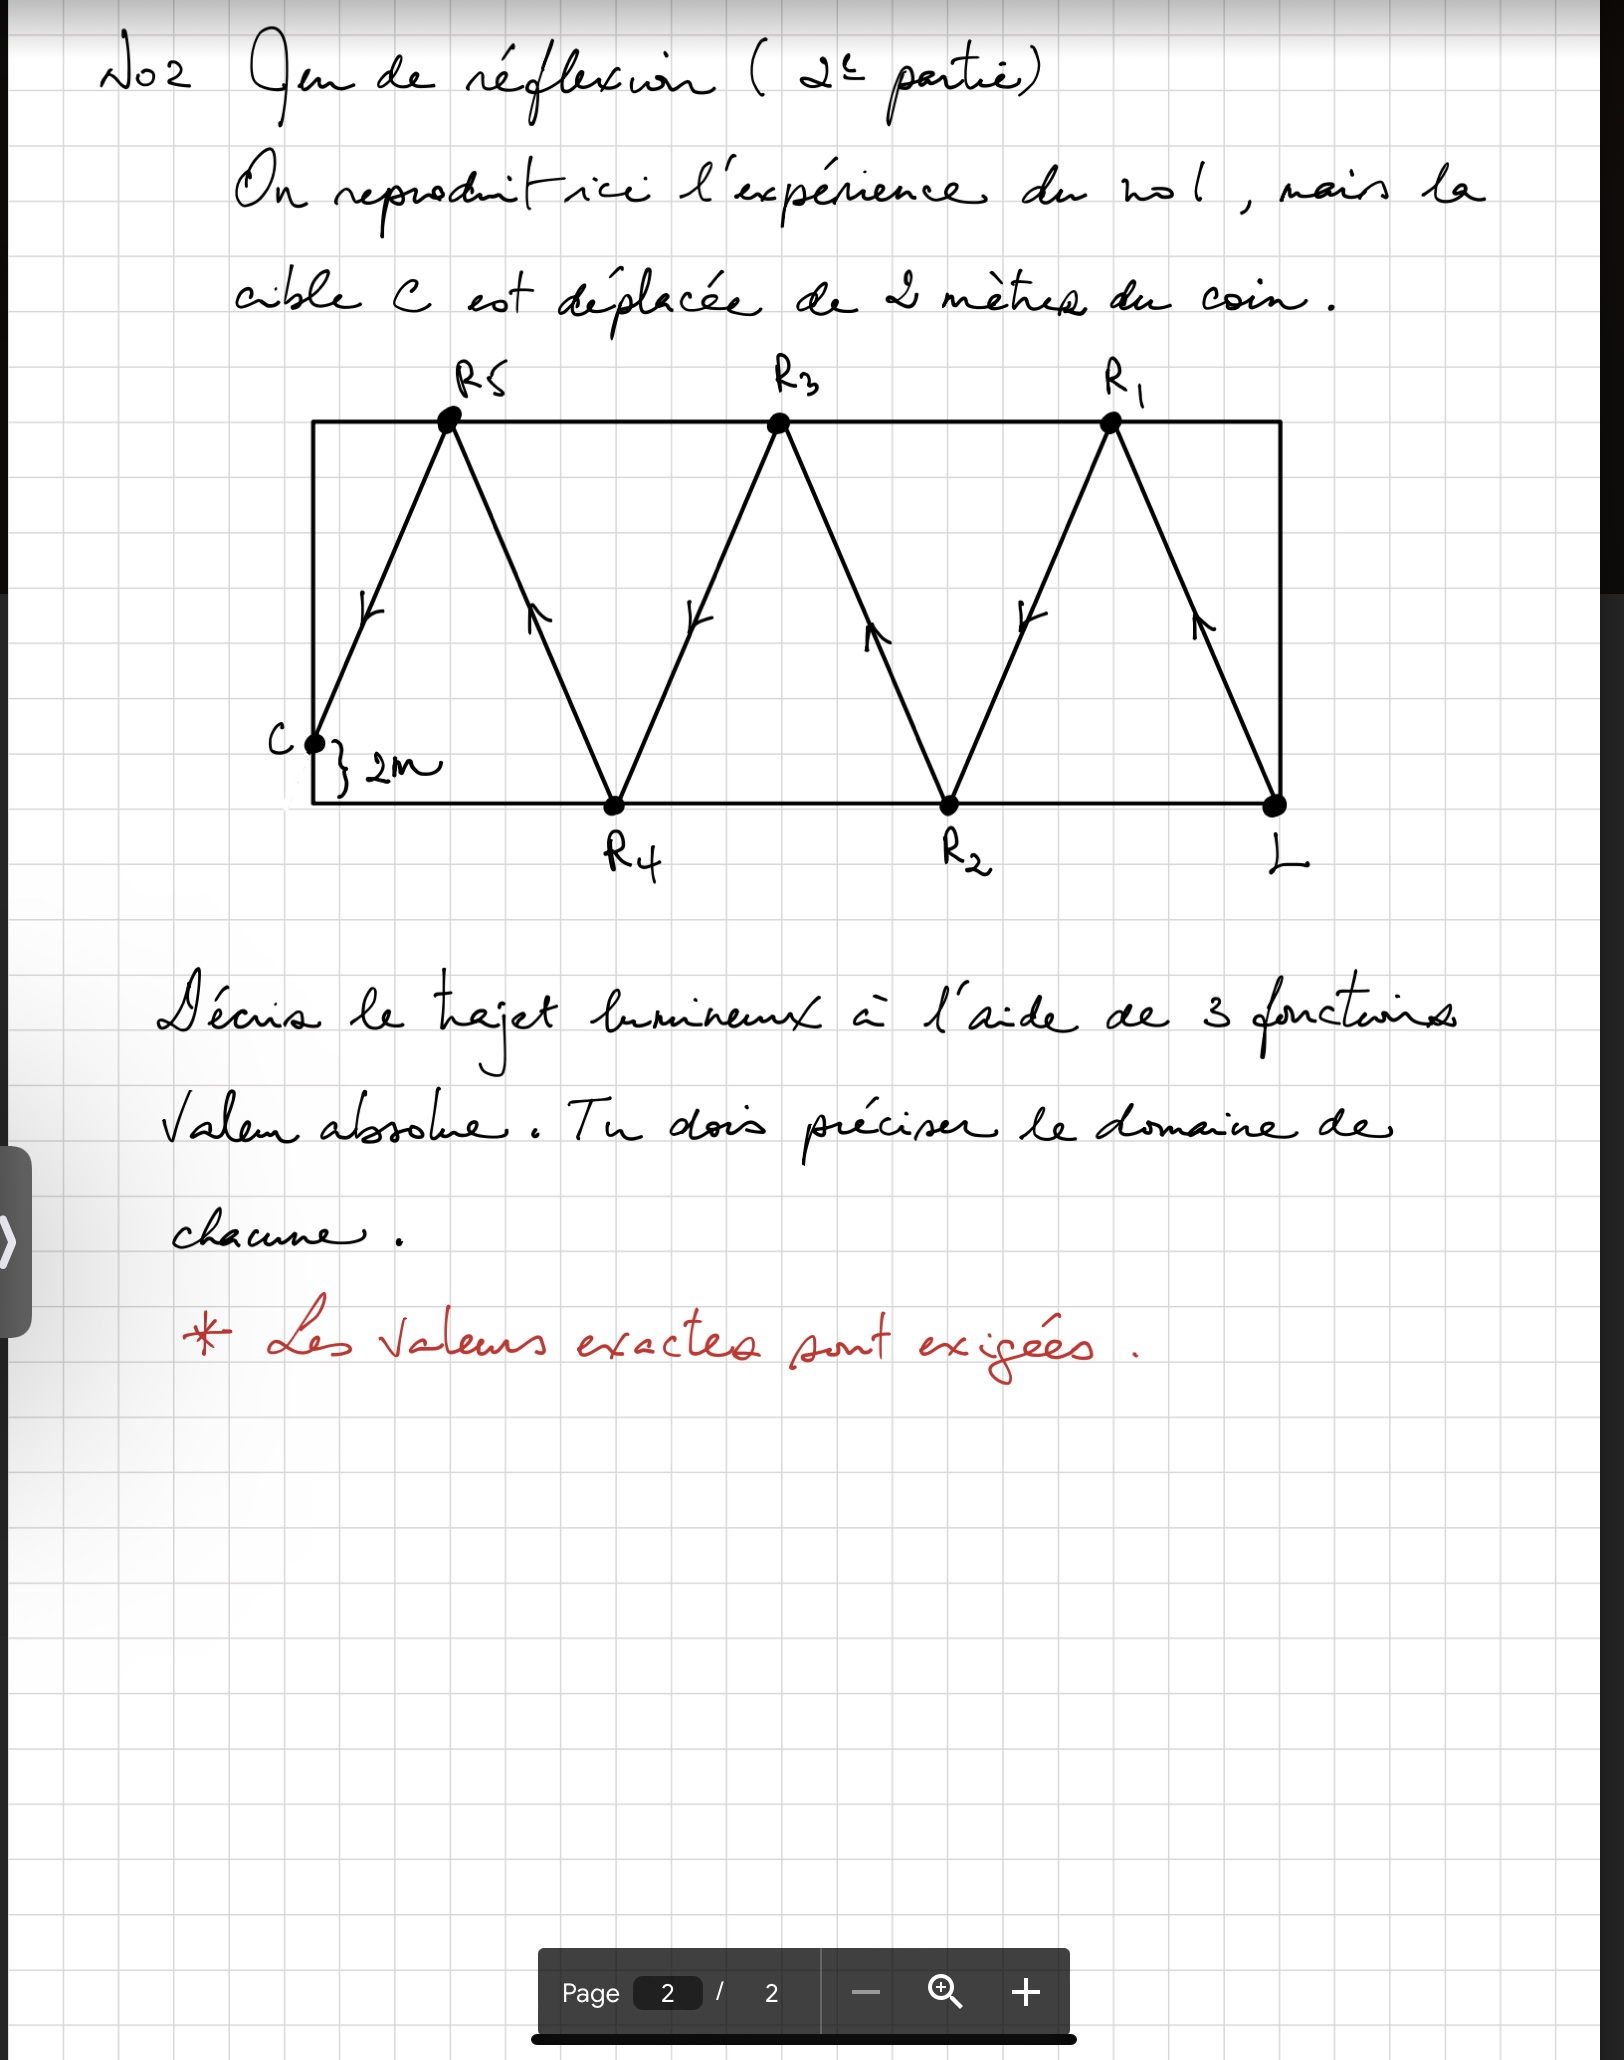 No2 Jeu de réflexion (2e partie)
On reproduit ici l'expérience du no 1, mais la
cible C est déplacée de 2 mètres du coin.
R5 R3 R1
C } 2m
R4 R2 L
Décris le trajet lumineux à l'aide de 3 fonctions
Valeur absolue. Tu dois préciser le domaine de
chacune.
* Les valeurs exactes sont exigées.
Page 2 / 2